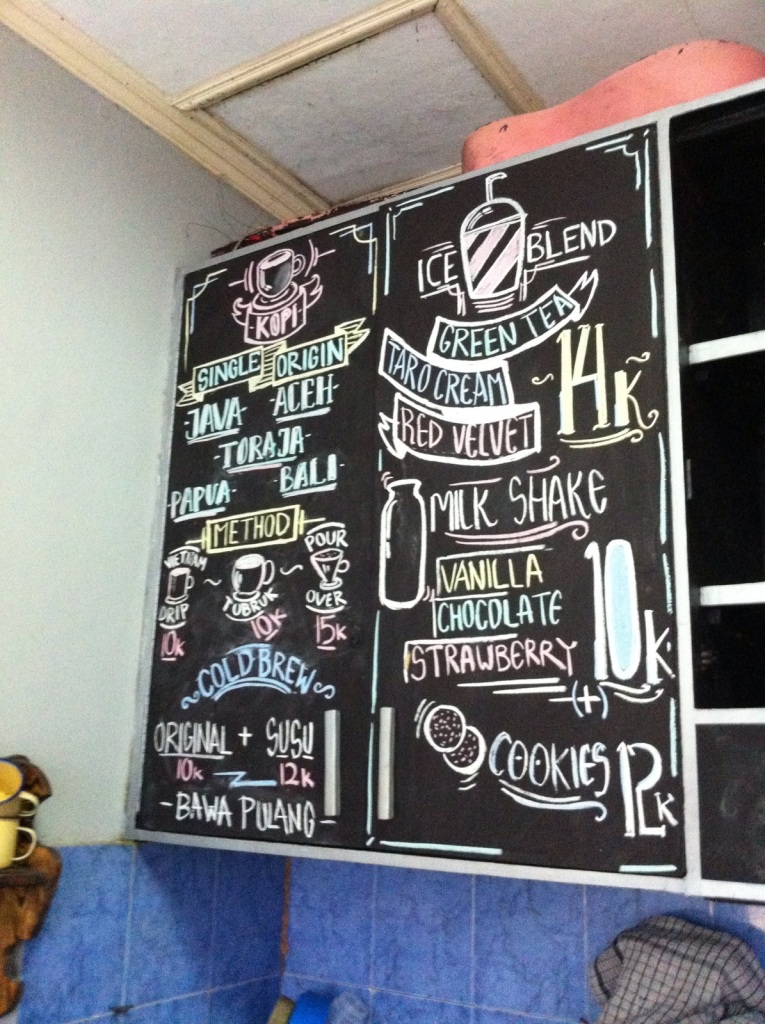 KOPI
SINGLE ORIGIN
JAVA ACEH
TORAJA
PAPUA BALI
METHOD
VIETNAM DRIP 10K
TUBRUK 10K
POUR OVER 15K
COLD BREW
ORIGINAL + SUSU
10K 12K
- BAWA PULANG -
ICE BLEND
GREEN TEA
TARO CREAM
RED VELVET
14K
MILK SHAKE
VANILLA
CHOCOLATE
STRAWBERRY
10K
(+)
COOKIES 12K